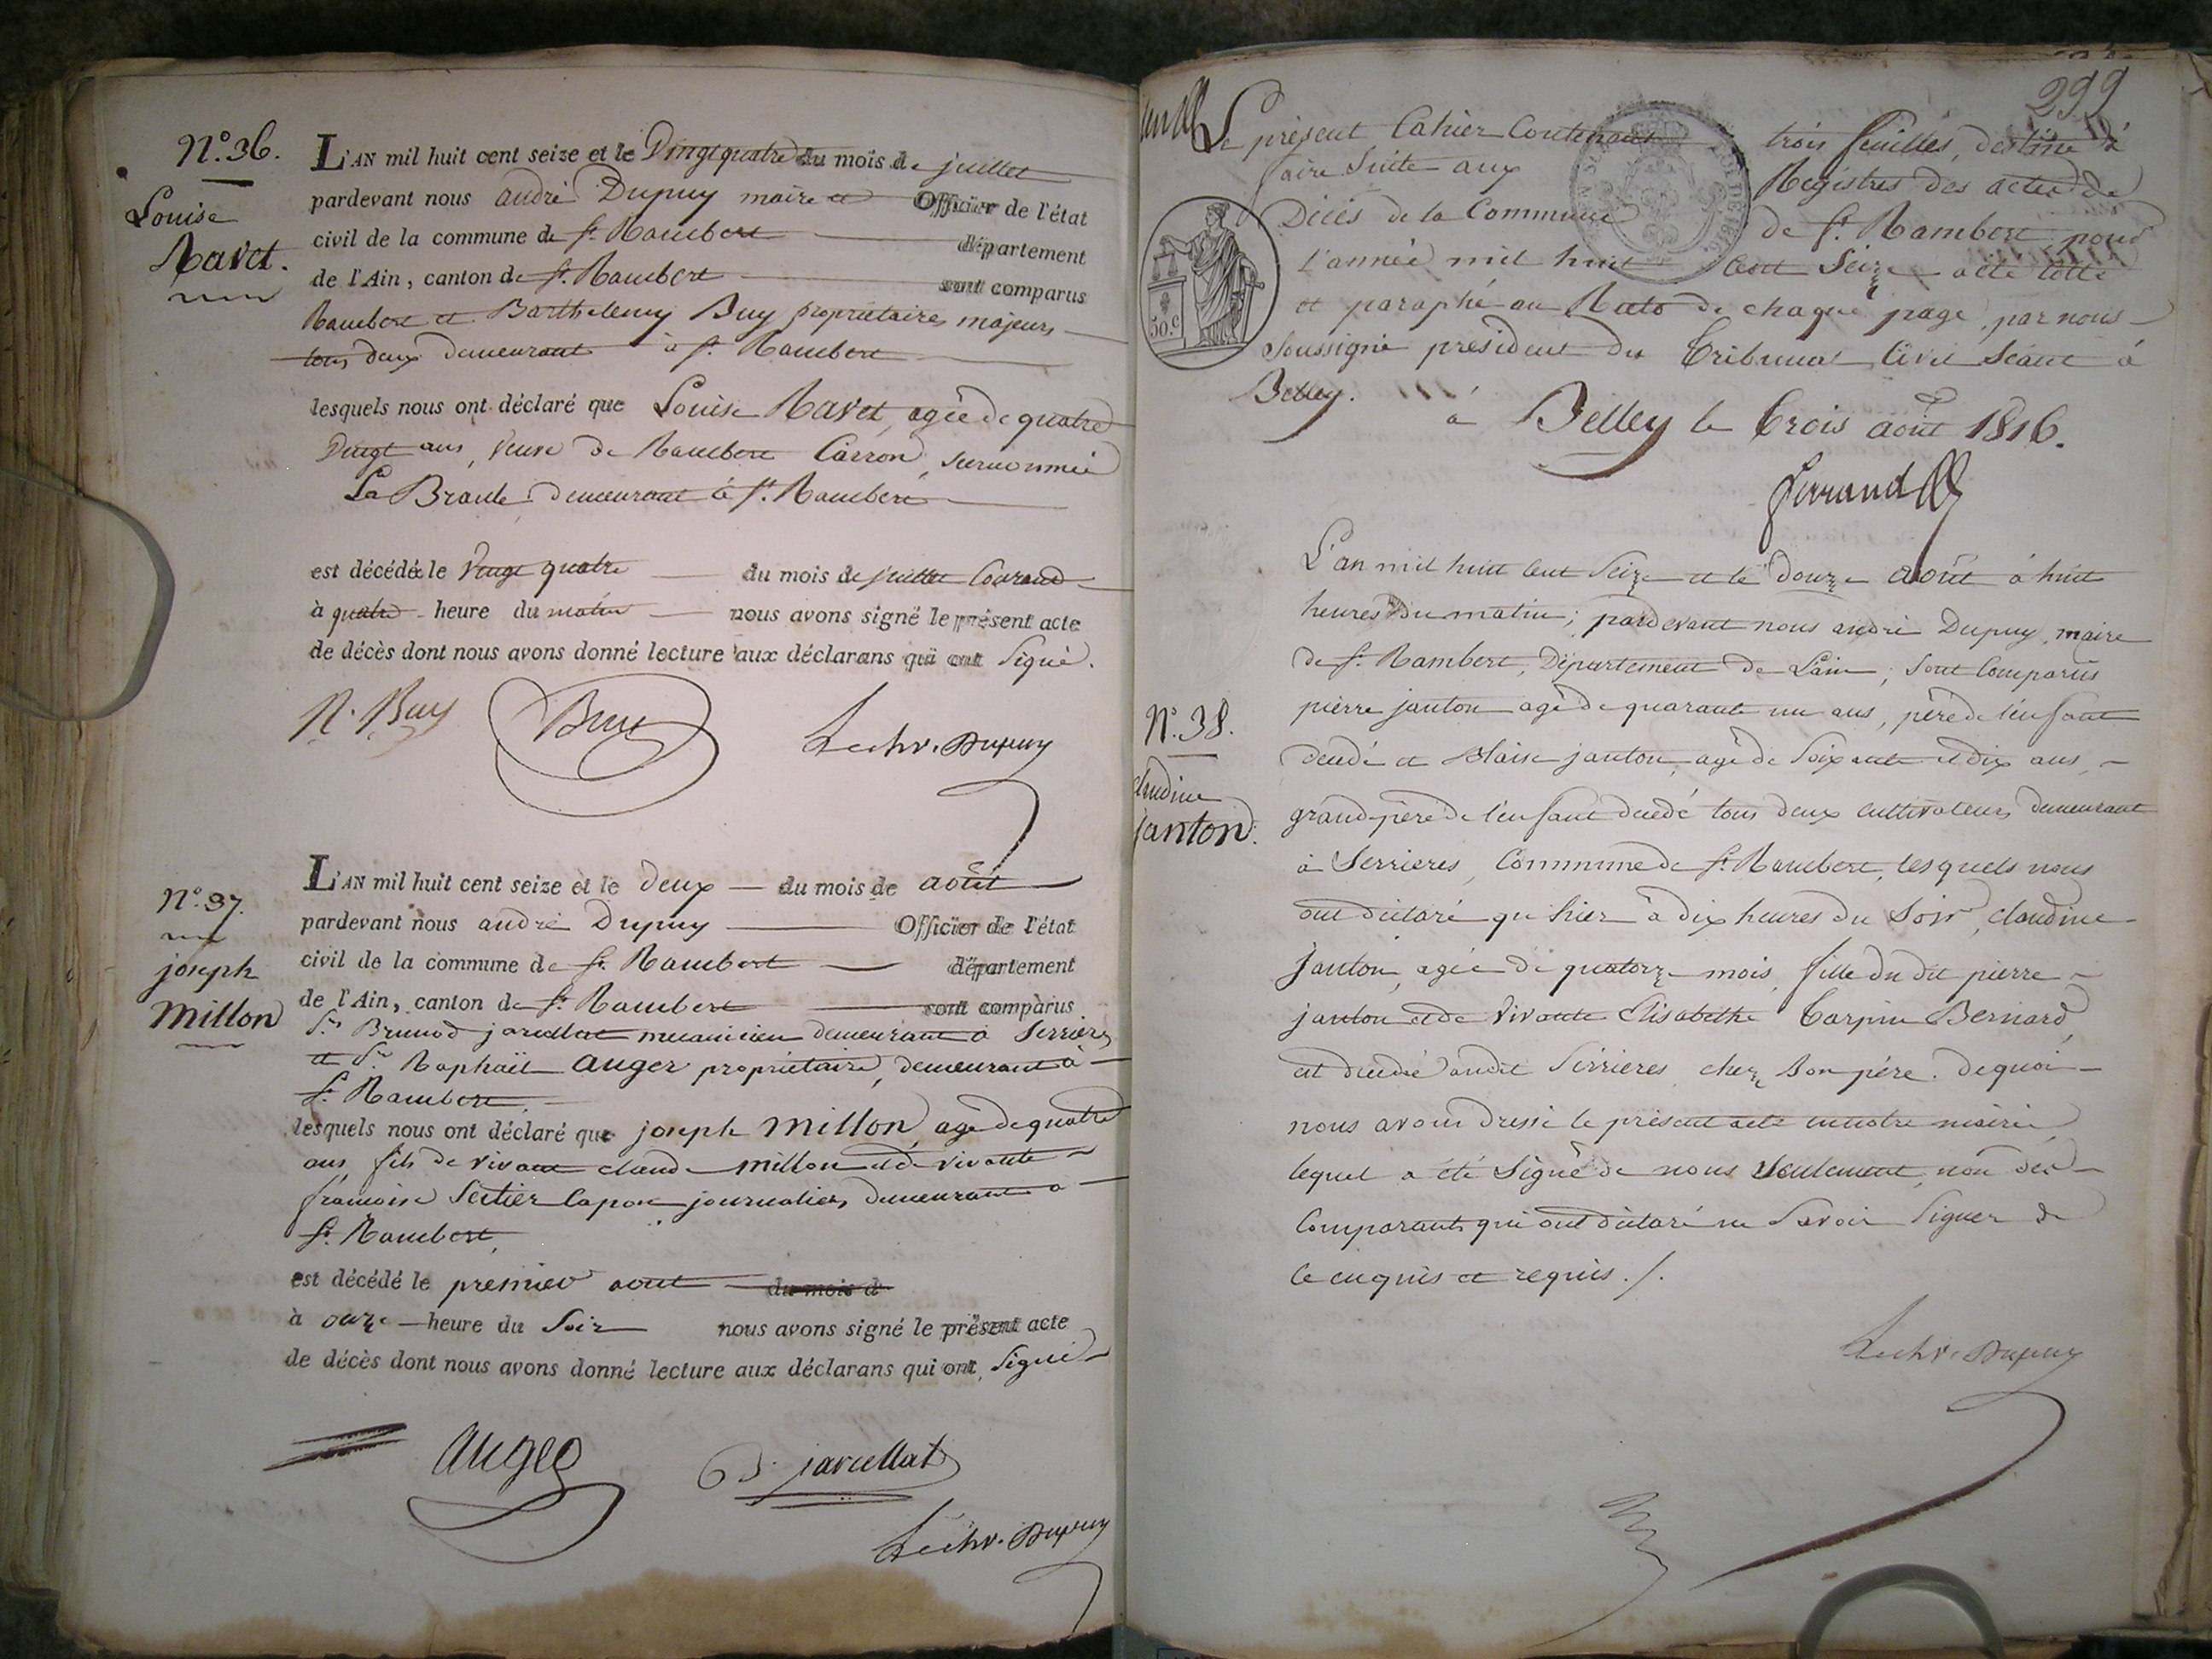 N.° 36.
Louise
Ravet.
L'AN mil huit cent seize et le Vingt quatre du mois de juillet
pardevant nous andré Dupuy maire et Officier de l'état
civil de la commune de St. Rambert département
de l'Ain, canton de St. Rambert sont comparus
Rambert et Barthelemy Buy propriétaires majeurs
tous deux demeurant à St. Rambert
lesquels nous ont déclaré que Louise Ravet, agée de quatre
Vingt ans, veuve de Rambert Carron, surnommée
La Braule demeurant à St. Rambert
est décédée le Vingt quatre du mois de juillet Courant
à quatre heure du matin nous avons signé le présent acte
de décès dont nous avons donné lecture aux déclarans qui ont Signé.
R. Buy Buy
Dupuy
N.° 37.
joseph
Millon
L'AN mil huit cent seize et le deux du mois de août
pardevant nous andré Dupuy Officier de l'état
civil de la commune de St. Rambert département
de l'Ain, canton de St. Rambert sont comparus
Sr. Brunod jarcellat mecanicien demeurant à Serrieres
et Sr. Raphaël Auger propriétaire, demeurant à
St. Rambert,
lesquels nous ont déclaré que joseph Millon, agé de quatre
ans fils de vivant claude Millon et de vivante
francoise Sertier lapon journaliers demeurant à
St. Rambert,
est décédé le premier aout du mois d
à onze heure du Soir nous avons signé le présent acte
de décès dont nous avons donné lecture aux déclarans qui ont Signé
Auger B. jarcellat
Dupuy
299
Le présent Cahier Contenant trois feuilles, destiné à
faire Suite aux Registres des actes de
Décès de la Commune de St. Rambert pour
l'année mil huit Cent Seize a été Cotté
et paraphé au Recto de chaque page, par nous
Soussigné président du Tribunal Civil Séant à
Belley.
50. C
à Belley le Trois août 1816.
Ferrand
N.° 38.
claudine
janton.
L'an mil huit Cent Seize et le Douze août à huit
heures du matin; pardevant nous andré Dupuy, maire
de St. Rambert, Département de L'ain, Sont Comparus
pierre janton agé de quarante un ans, père de l'enfant
decedé et Blaise janton, agé de Soixante et dix ans,
grand-père de l'enfant decedé tous deux cultivateurs, demeurant
à Serrieres, Commune de St. Rambert, lesquels nous
ont déclaré qu'hier à dix heures du Soir, claudine
janton, agée de quatorze mois, fille du dit pierre
janton et de Vivante Elisabethe Carpin Bernard,
est decedée audit Serrieres chez Son père. De quoi
nous avons dressé le présent acte en notre mairie,
lequel a été Signé de nous Seulement, non des
Comparants qui ont déclaré ne Savoir Signer de
ce enquis et requis./.
Dupuy